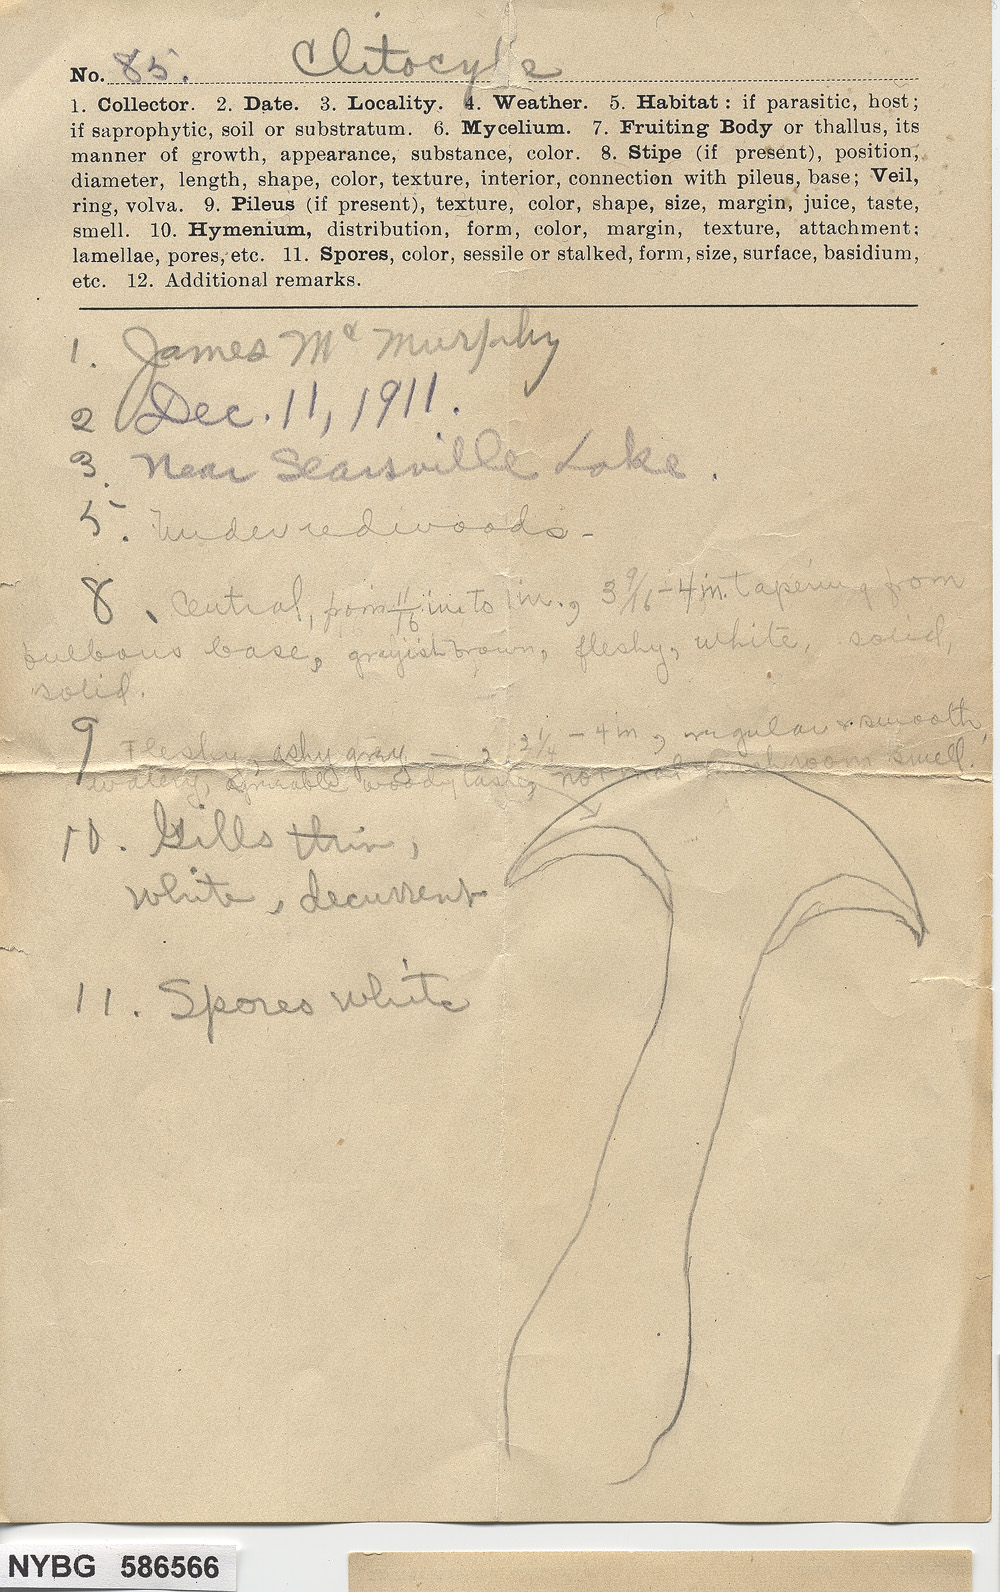 No. 85. Clitocybe
1. Collector. 2. Date. 3. Locality. 4. Weather. 5. Habitat: if parasitic, host;
if saprophytic, soil or substratum. 6. Mycelium. 7. Fruiting Body or thallus, its
manner of growth, appearance, substance, color. 8. Stipe (if present), position,
diameter, length, shape, color, texture, interior, connection with pileus, base; Veil,
ring, volva. 9. Pileus (if present), texture, color, shape, size, margin, juice, taste,
smell. 10. Hymenium, distribution, form, color, margin, texture, attachment:
lamellae, pores, etc. 11. Spores, color, sessile or stalked, form, size, surface, basidium,
etc. 12. Additional remarks.
1. James Mc Murphy
2 Dec. 11, 1911.
3. Near Searsville Lake.
5. Under redwoods-
8. Central, from 11/16 in to 1 in., 3 9/16 - 4 in. tapering from
bulbous base, grayish brown, fleshy, white, solid,
solid.
9 Fleshy, ashy gray —, 2 1/4 - 4 in, irregular & smooth,
watery, agreeable woody taste, normal mushroom smell.
10. Gills thin,
white, decurrent
11. Spores white
NYBG 586566